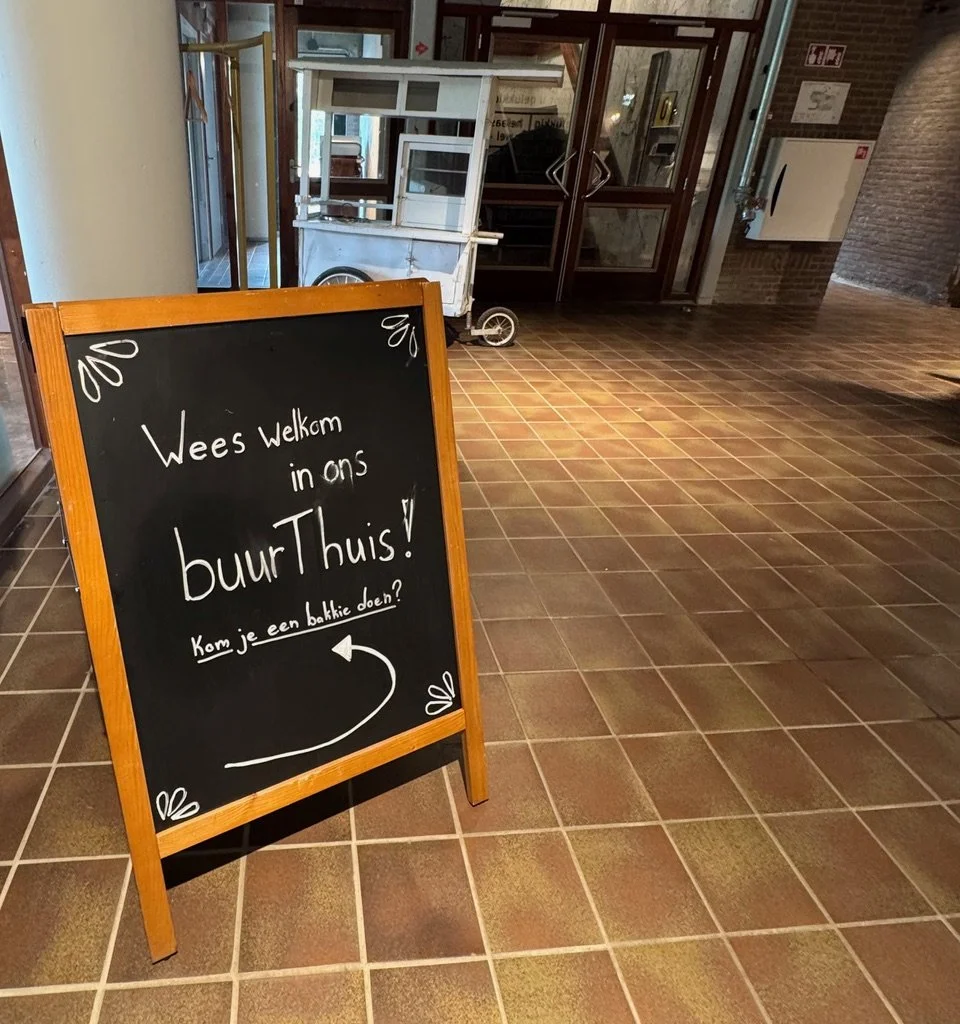 Wees welkom
in ons
buurThuis!
Kom je een bakkie doen?